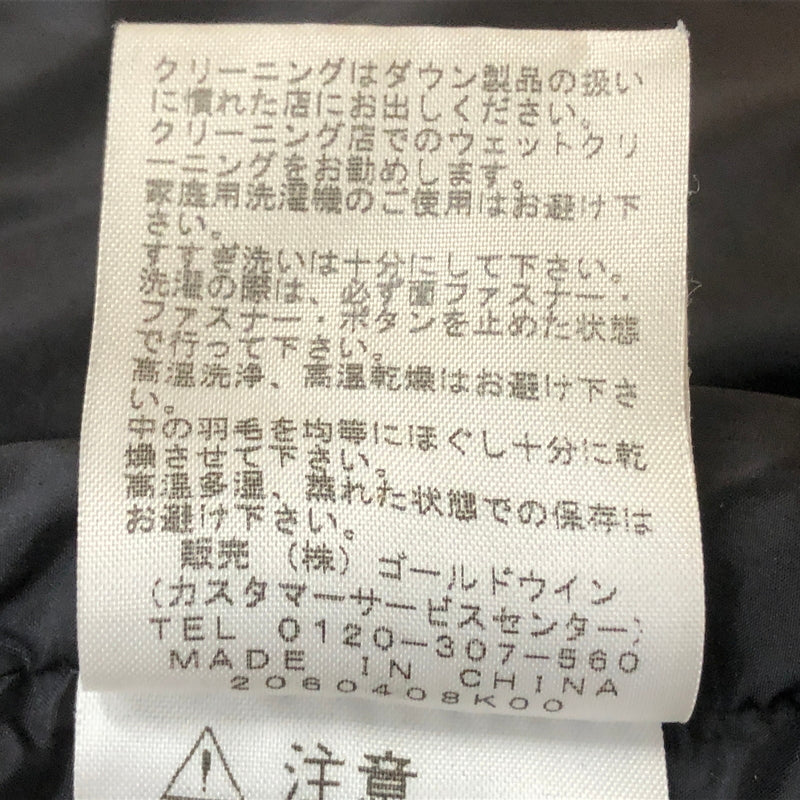 クリーニングはダウン製品の扱い
に慣れた店にお出しください。
クリーニング店でのウェットクリ
ーニングをお勧めします。
家庭用洗濯機のご使用はお避け下
さい。
すすぎ洗いは十分にして下さい。
洗濯の際は、必ず面ファスナー・
ファスナー・ボタンを止めた状態
で行って下さい。
高温洗浄、高温乾燥はお避け下さ
い。
中の羽毛を均等にほぐし十分に乾
燥させて下さい。
高温多湿、蒸れた状態での保存は
お避け下さい。
販売 (株) ゴールドウイン
(カスタマーサービスセンター)
TEL 0120-307-560
MADE IN CHINA
2060408K00
注意